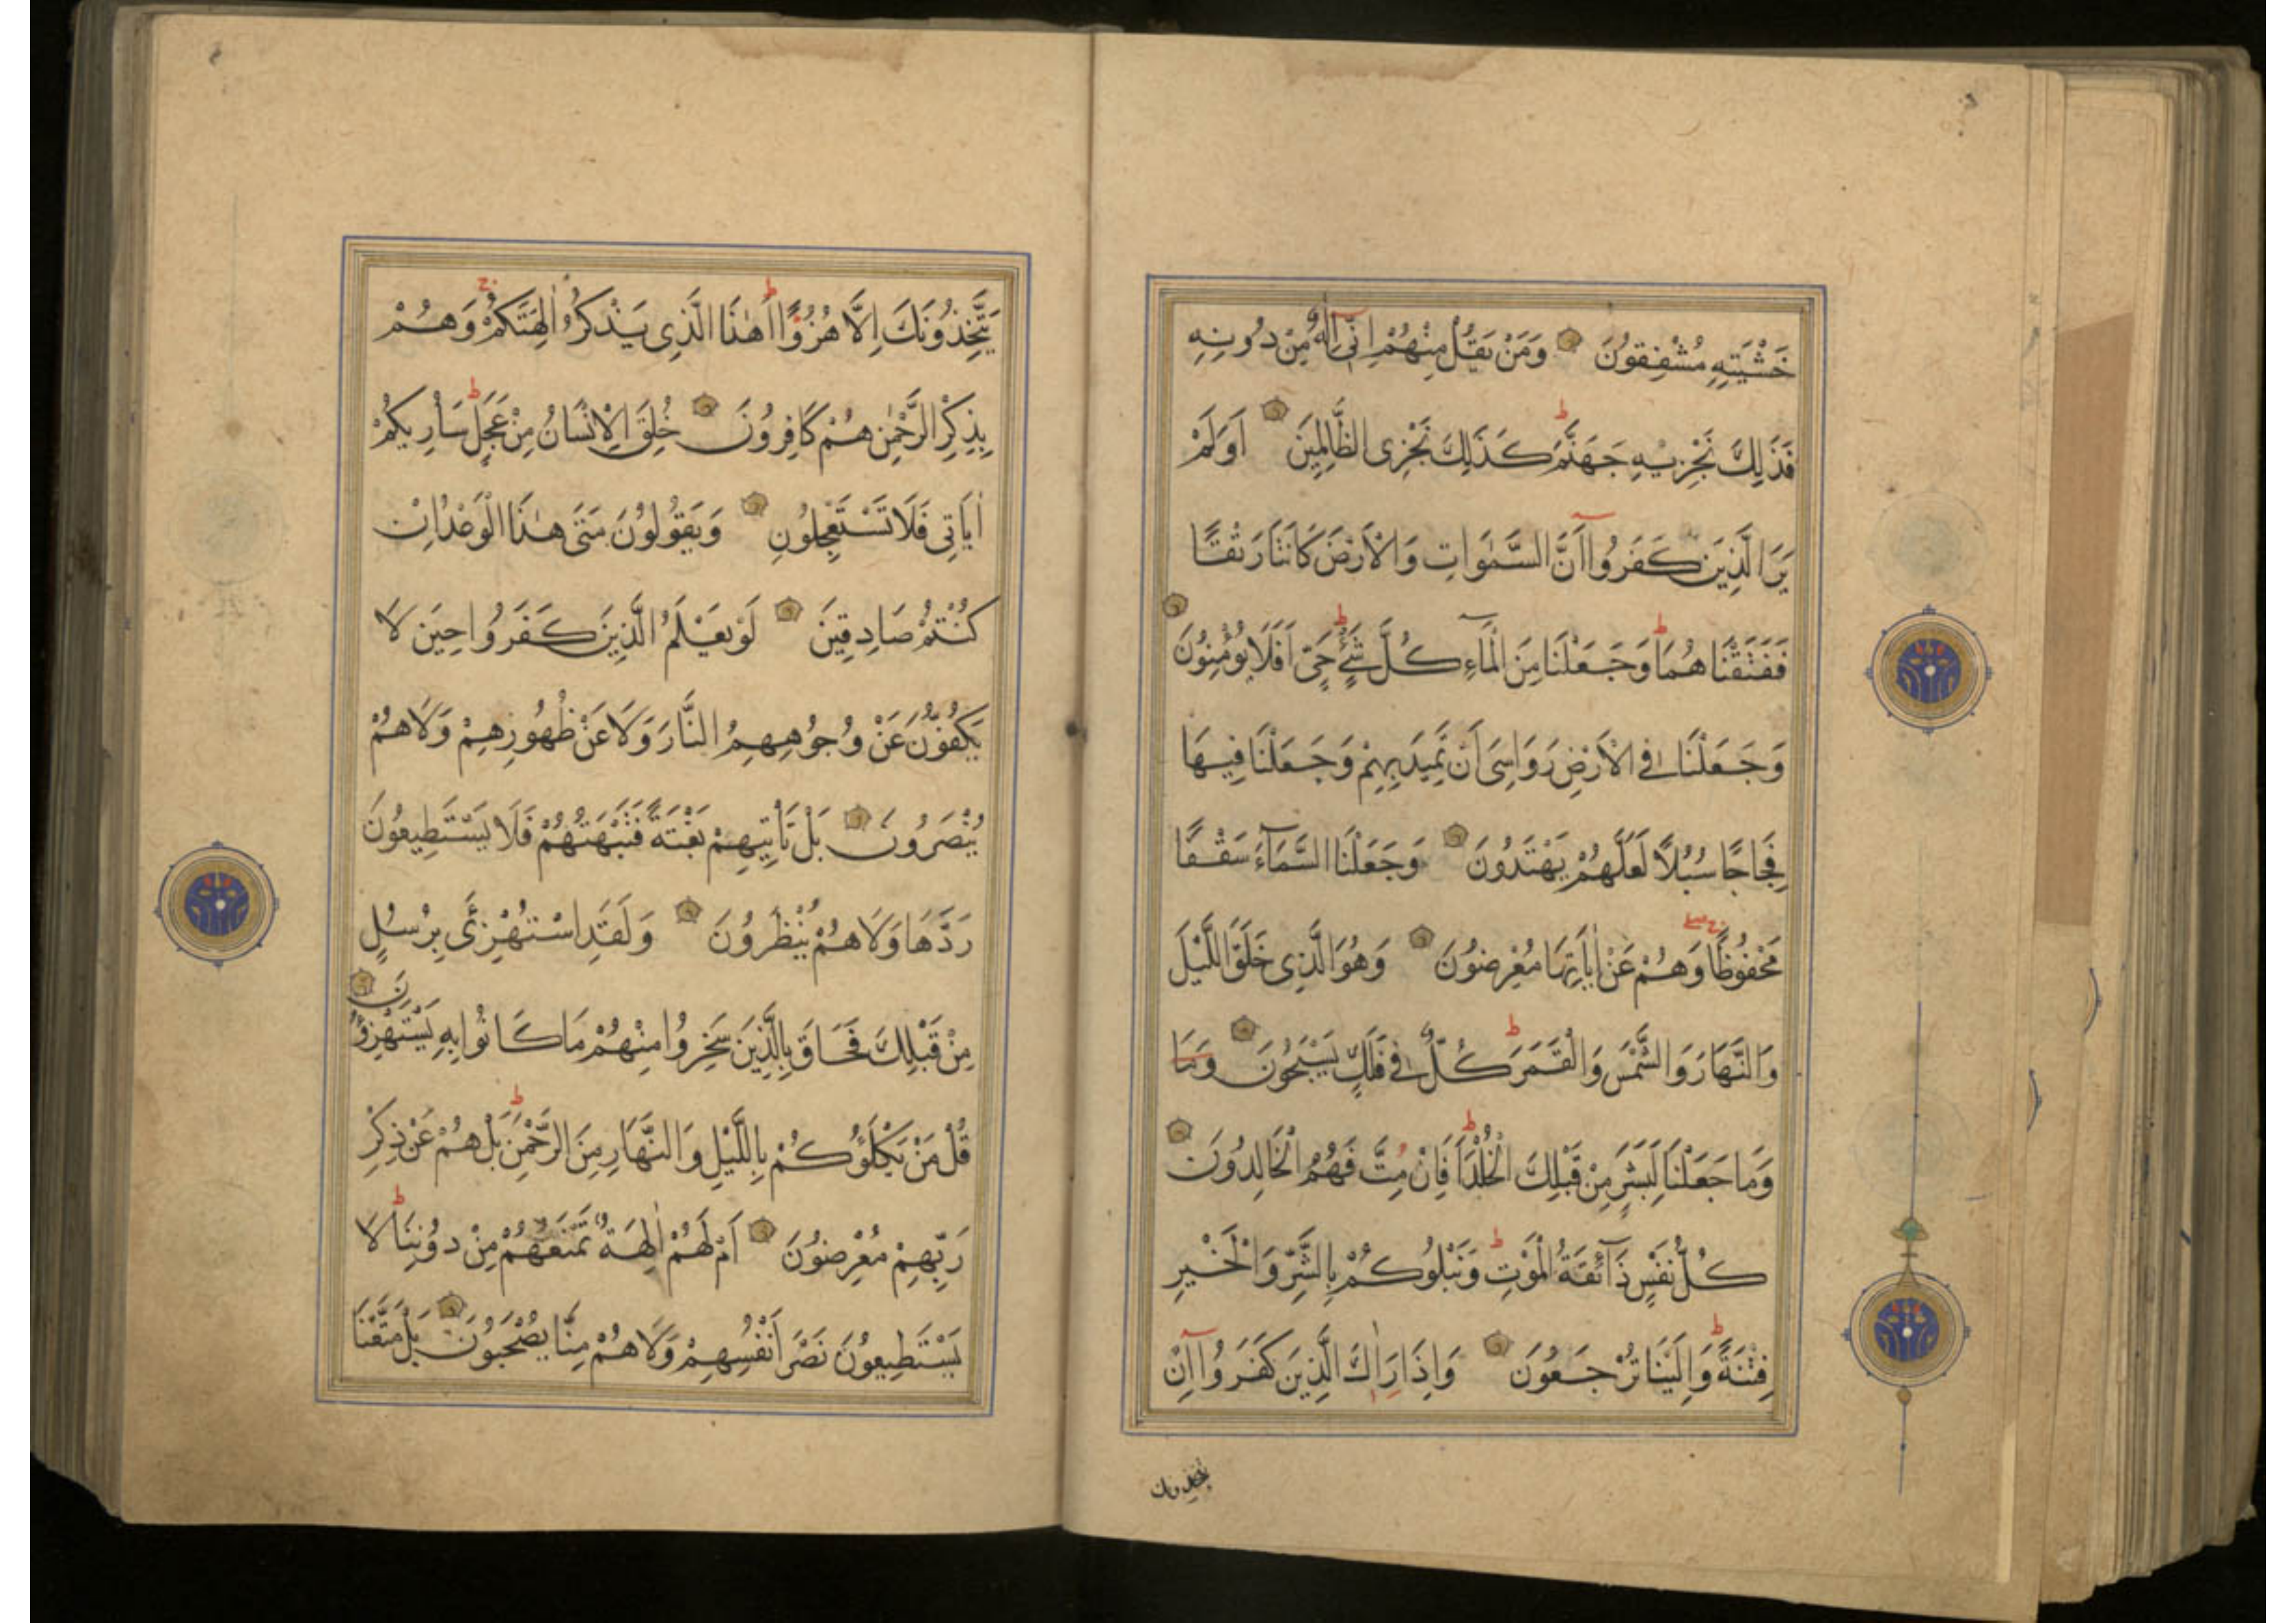 خَشْيَتِهِ مُشْفِقُونَ وَمَنْ يَقُلْ مِنْهُمْ اِنّٓى اِلٰهٌ مِنْ دُونِهِ
فَذٰلِكَ نَجْزِيهِ جَهَنَّمَ ط كَذٰلِكَ نَجْزِى الظَّالِمِينَ اَوَلَمْ
يَرَ الَّذِينَ كَفَرُوٓا اَنَّ السَّمٰوَاتِ وَالْاَرْضَ كَانَتَا رَتْقًا
فَفَتَقْنَاهُمَا ط وَجَعَلْنَا مِنَ الْمَآءِ كُلَّ شَىْءٍ حَىٍّ ط اَفَلَا يُؤْمِنُونَ
وَجَعَلْنَا فِى الْاَرْضِ رَوَاسِىَ اَنْ تَمِيدَ بِهِمْ وَجَعَلْنَا فِيهَا
فِجَاجًا سُبُلًا لَعَلَّهُمْ يَهْتَدُونَ وَجَعَلْنَا السَّمَآءَ سَقْفًا
مَحْفُوظًا وَهُمْ عَنْ اٰيَاتِهَا مُعْرِضُونَ وَهُوَ الَّذِى خَلَقَ اللَّيْلَ
وَالنَّهَارَ وَالشَّمْسَ وَالْقَمَرَ ط كُلٌّ فِى فَلَكٍ يَسْبَحُونَ وَمَا
وَمَا جَعَلْنَا لِبَشَرٍ مِنْ قَبْلِكَ الْخُلْدَ ط اَفَاِنْ مِتَّ فَهُمُ الْخَالِدُونَ
كُلُّ نَفْسٍ ذَآئِقَةُ الْمَوْتِ ط وَنَبْلُوكُمْ بِالشَّرِّ وَالْخَيْرِ
فِتْنَةً ط وَاِلَيْنَا تُرْجَعُونَ وَاِذَا رَاٰكَ الَّذِينَ كَفَرُوٓا اِنْ
يتخذونك
يَتَّخِذُونَكَ اِلَّا هُزُوًا ط اَهٰذَا الَّذِى يَذْكُرُ اٰلِهَتَكُمْ ج وَهُمْ
بِذِكْرِ الرَّحْمٰنِ هُمْ كَافِرُونَ خُلِقَ الْاِنْسَانُ مِنْ عَجَلٍ ط سَاُرِيكُمْ
اٰيَاتِى فَلَا تَسْتَعْجِلُونِ وَيَقُولُونَ مَتٰى هٰذَا الْوَعْدُ اِنْ
كُنْتُمْ صَادِقِينَ لَوْ يَعْلَمُ الَّذِينَ كَفَرُوا حِينَ لَا
يَكُفُّونَ عَنْ وُجُوهِهِمُ النَّارَ وَلَا عَنْ ظُهُورِهِمْ وَلَا هُمْ
يُنْصَرُونَ بَلْ تَاْتِيهِمْ بَغْتَةً فَتَبْهَتُهُمْ فَلَا يَسْتَطِيعُونَ
رَدَّهَا وَلَا هُمْ يُنْظَرُونَ وَلَقَدِ اسْتُهْزِئَ بِرُسُلٍ
مِنْ قَبْلِكَ فَحَاقَ بِالَّذِينَ سَخِرُوا مِنْهُمْ مَا كَانُوا بِهِ يَسْتَهْزِؤُنَ
قُلْ مَنْ يَكْلَؤُكُمْ بِاللَّيْلِ وَالنَّهَارِ مِنَ الرَّحْمٰنِ ط بَلْ هُمْ عَنْ ذِكْرِ
رَبِّهِمْ مُعْرِضُونَ اَمْ لَهُمْ اٰلِهَةٌ تَمْنَعُهُمْ مِنْ دُونِنَا ط لَا
يَسْتَطِيعُونَ نَصْرَ اَنْفُسِهِمْ وَلَا هُمْ مِنَّا يُصْحَبُونَ بَلْ مَتَّعْنَا